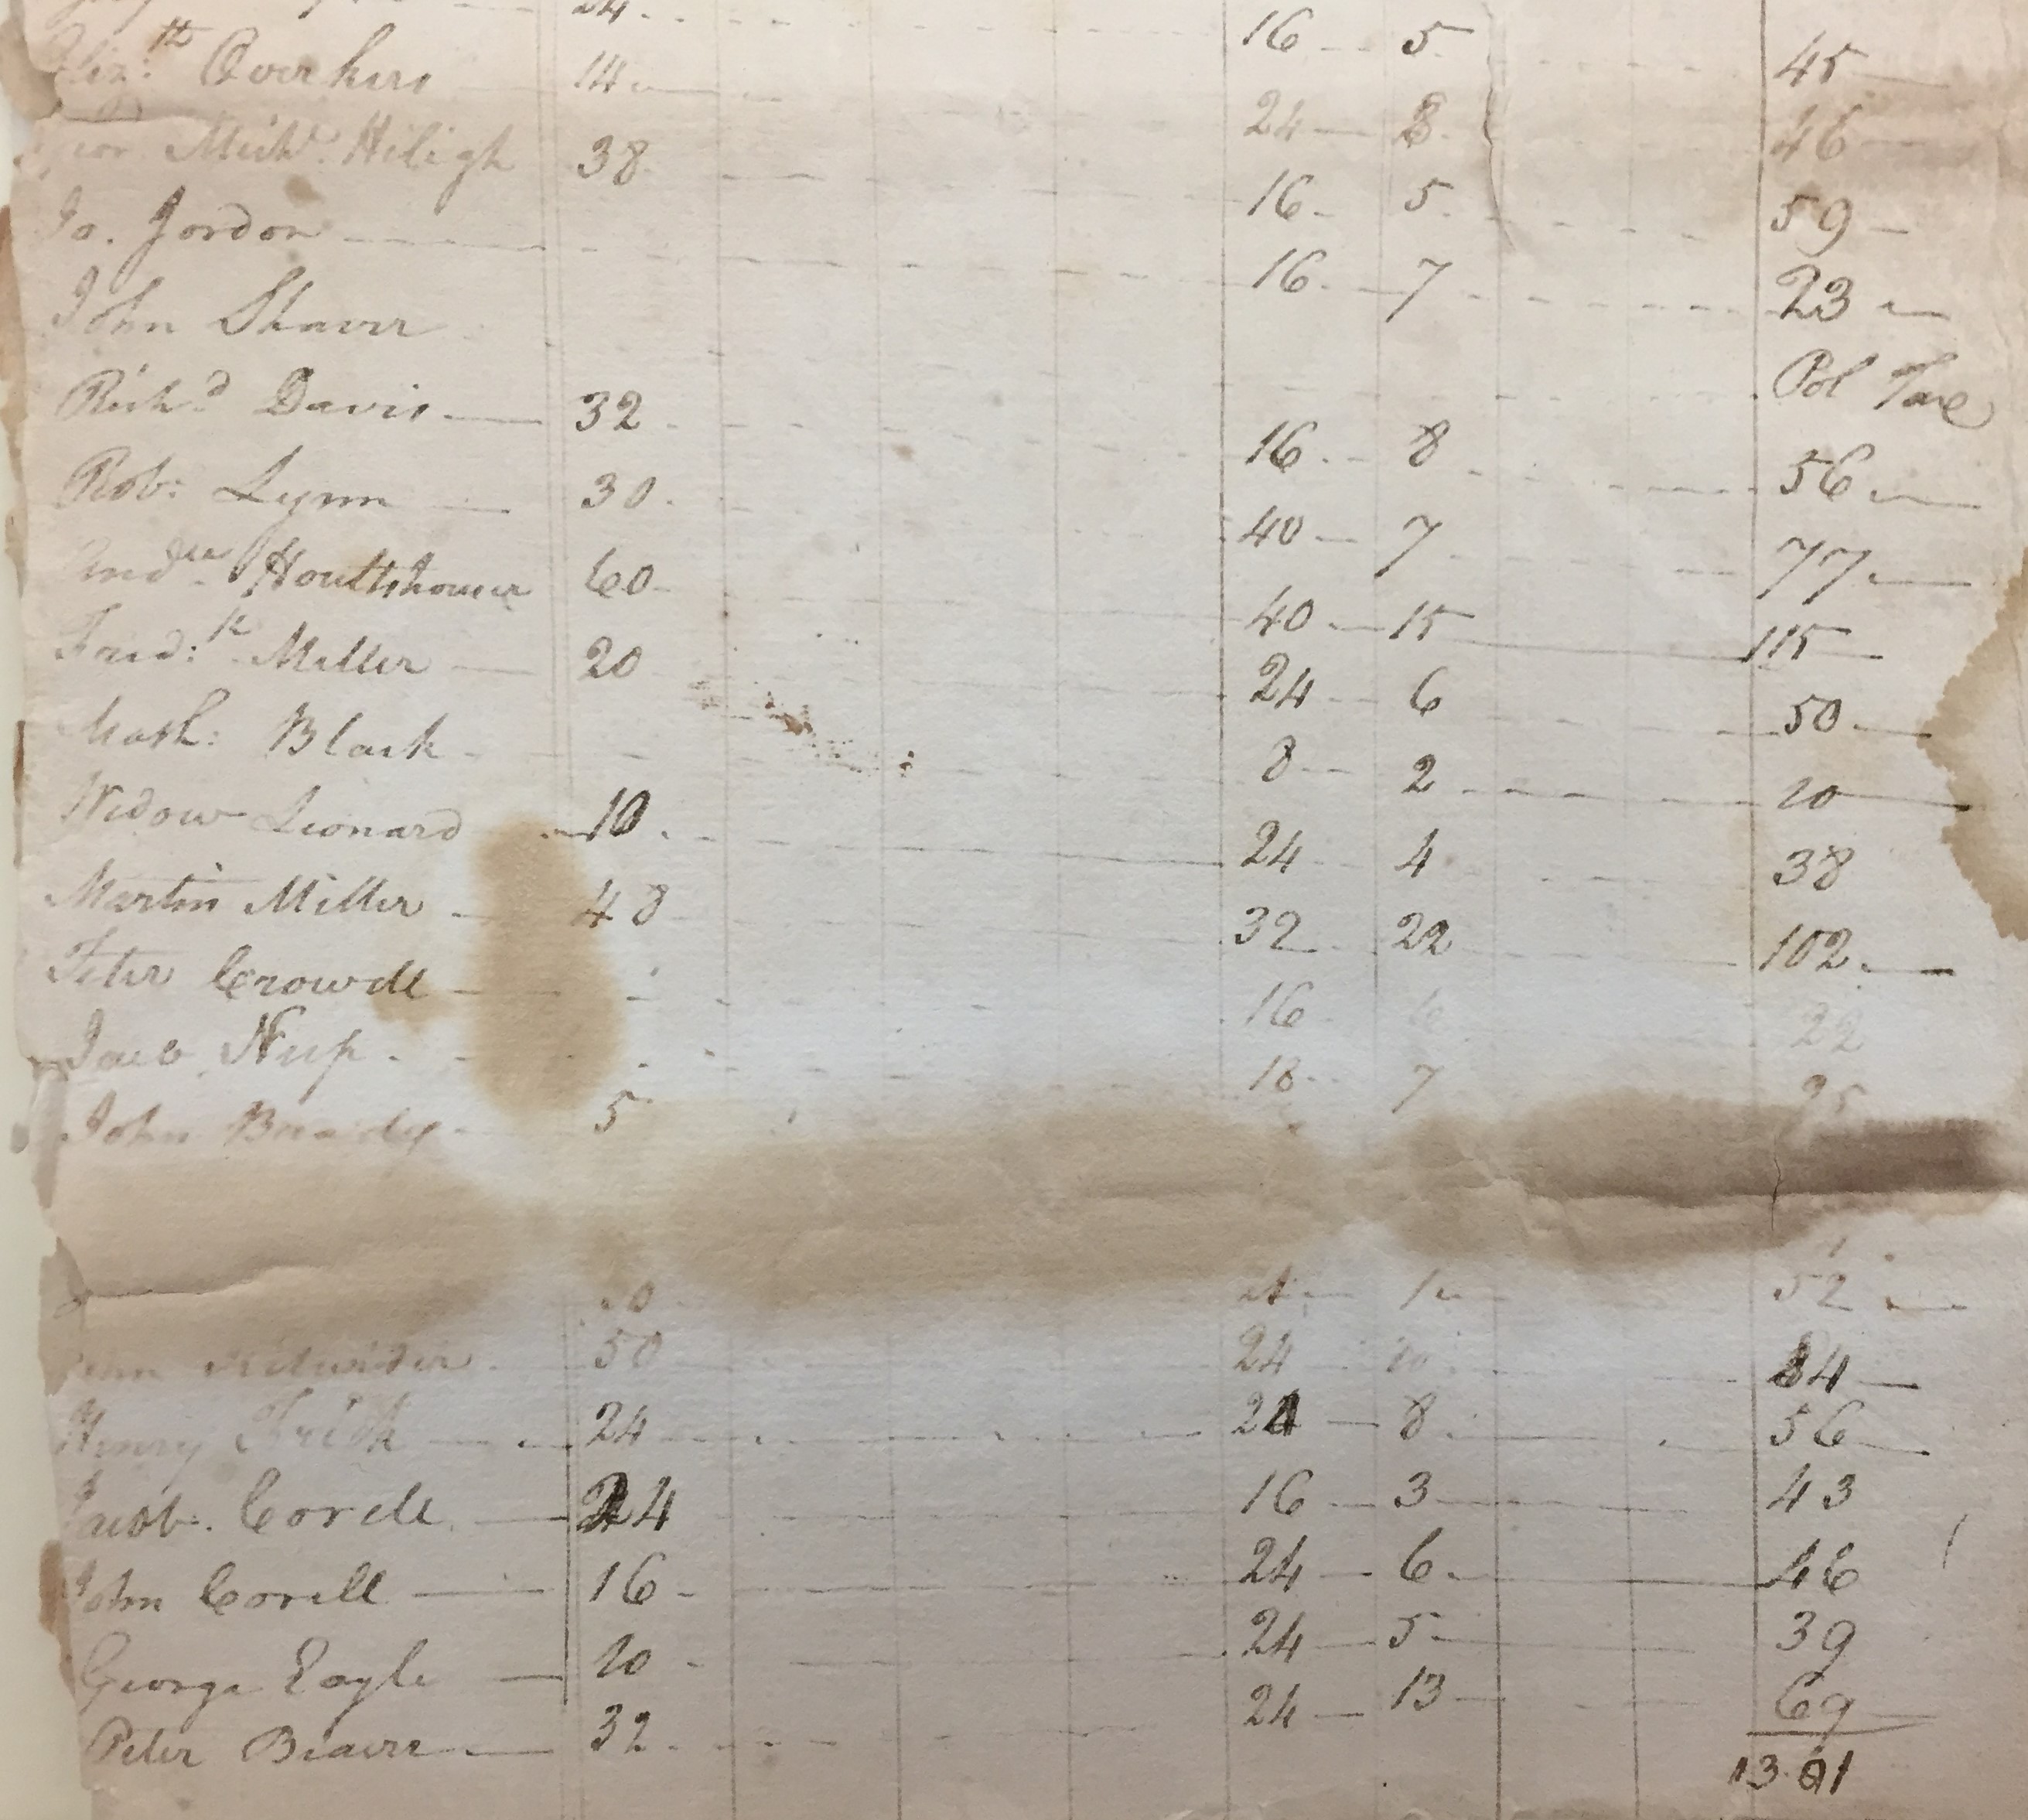 24 16 5 45
Eliz:th Overhirs 14 24 8 46
Geor Mich.l Hiligh 38 16 5 59
Jo. Jordon 16 7 23
John Shaver Pol Tax
Rich.d Davis 32 16 8 56
Rob: Lynn 30 40 7 77
Andrew Houttshouser 60 40 15 115
Fred:k Miller 20 24 6 50
Mash: Black 8 2 10
Widow Leonard 10 24 4 38
Martin Miller 48 32 22 102
Peter Crowell 16 6 22
Jacob 18 7 25
John 5
52
John 50 24 10 84
Henry Frick 24 24 8 56
Jacob Corell 24 16 3 43
John Corell 16 24 6 46
George Eagle 10 24 5 39
Peter Beaver 32 24 13 69
1301